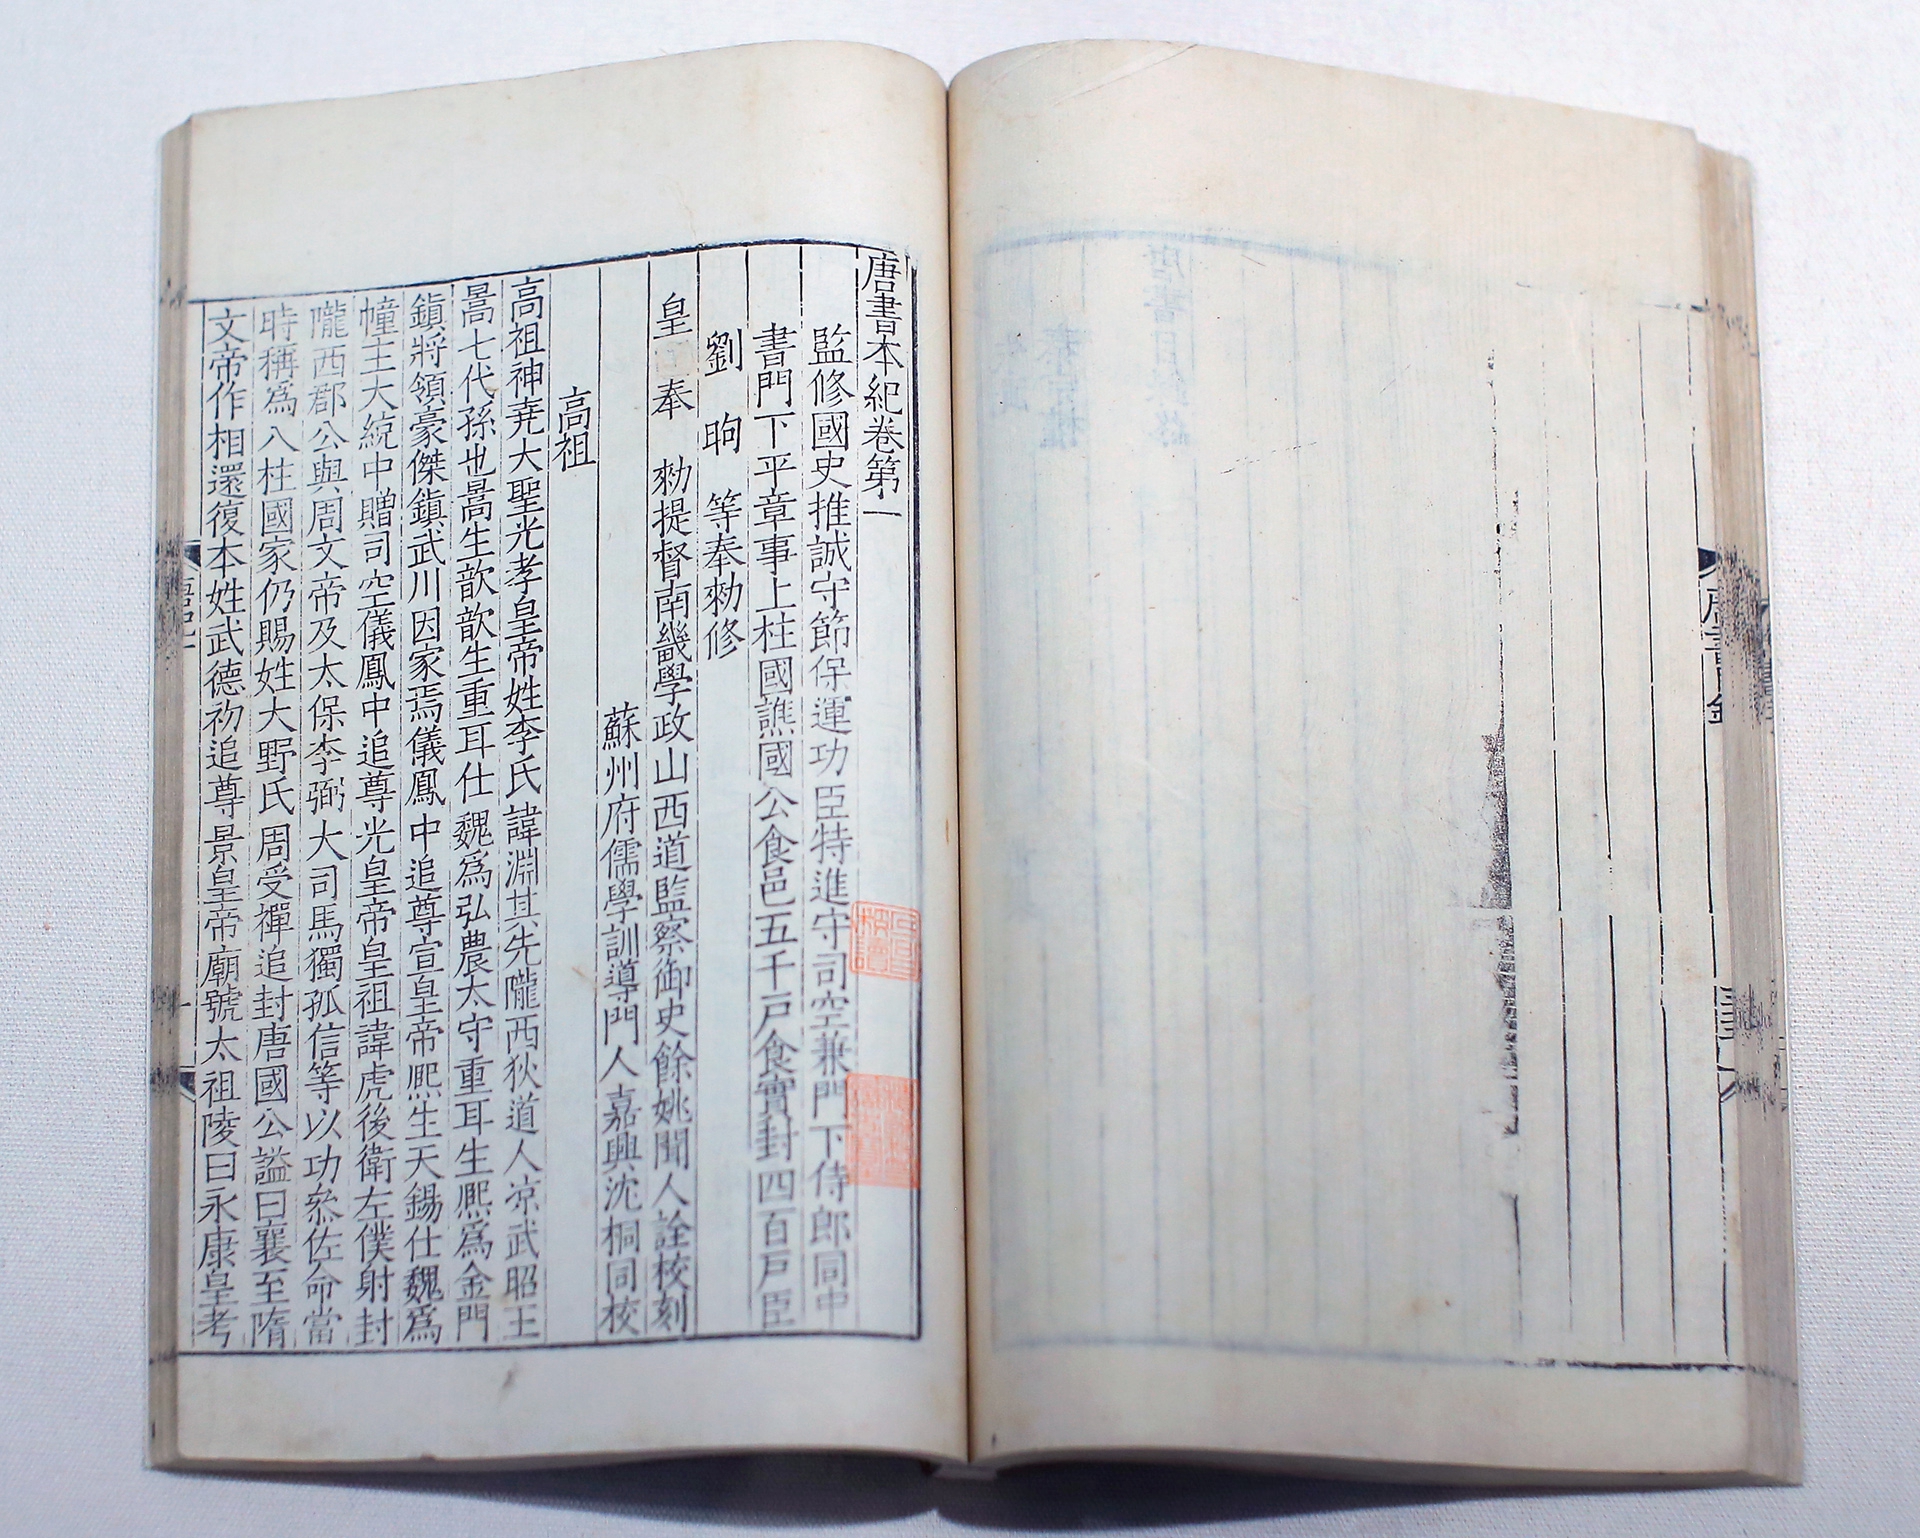 唐書目錄
唐書本紀卷第一
監修國史推誠守節保運功臣特進守司空兼門下侍郎同中
書門下平章事上柱國譙國公食邑五千戶食實封四百戶臣
劉昫等奉勑修
皇 奉勑提督南畿學政山西道監察御史餘姚聞人詮校刻
蘇州府儒學訓導門人嘉興沈桐同校
高祖
高祖神堯大聖光孝皇帝姓李氏諱淵其先隴西狄道人凉武昭王
暠七代孫也暠生歆歆生重耳仕魏爲弘農太守重耳生熈爲金門
鎮將領豪傑鎮武川因家焉儀鳳中追尊宣皇帝熈生天錫仕魏爲
幢主大統中贈司空儀鳳中追尊光皇帝皇祖諱虎後衛左僕射封
隴西郡公與周文帝及太保李弼大司馬獨孤信等以功叅佐命當
時稱爲八柱國家仍賜姓大野氏周受禪追封唐國公謚曰襄至隋
文帝作相還復本姓武德初追尊景皇帝廟號太祖陵曰永康皇考